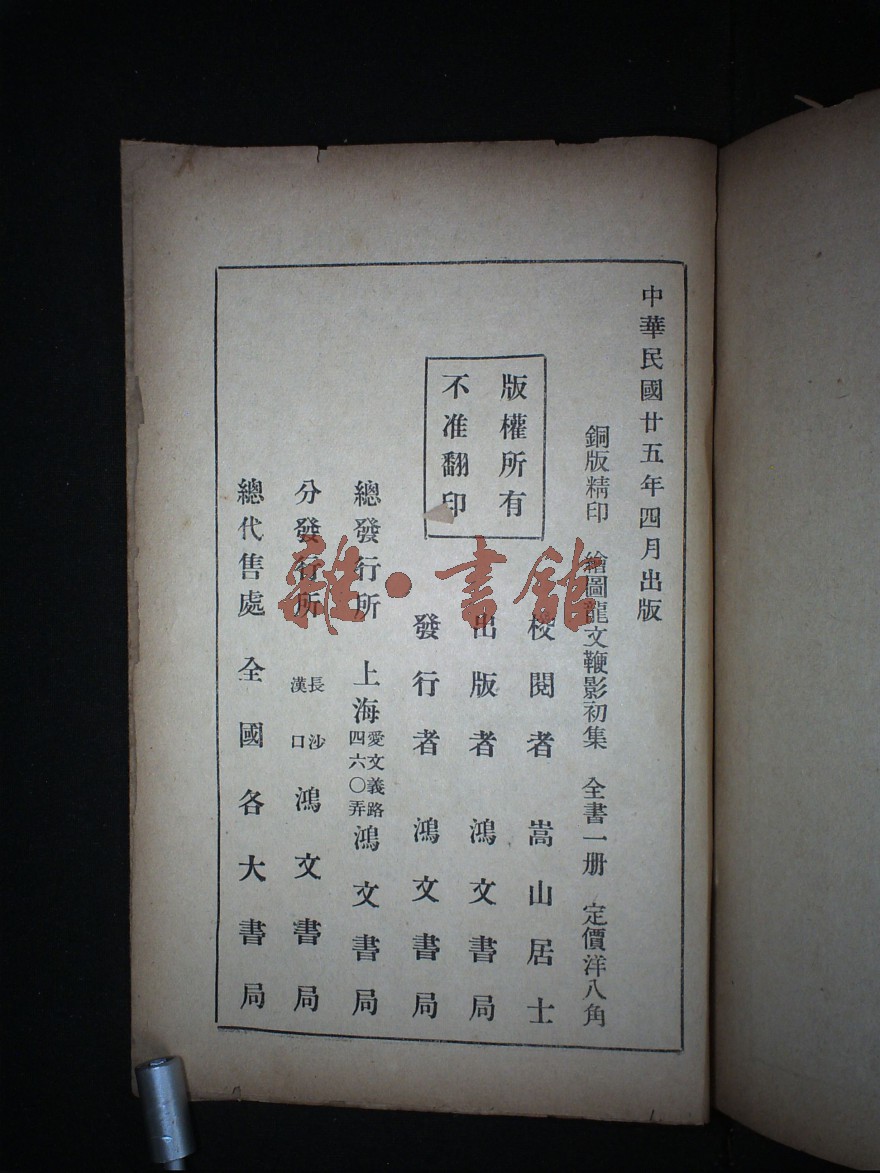 中華民國廿五年四月出版
銅版精印　繪圖龍文鞭影初集　全書一册　定價洋八角
版權所有
不准翻印
校閱者　嵩山居士
出版者　鴻文書局
發行者　鴻文書局
總發行所　上海愛文義路四六〇弄鴻文書局
分發行所　長沙漢口鴻文書局
總代售處　全國各大書局
雜·書館